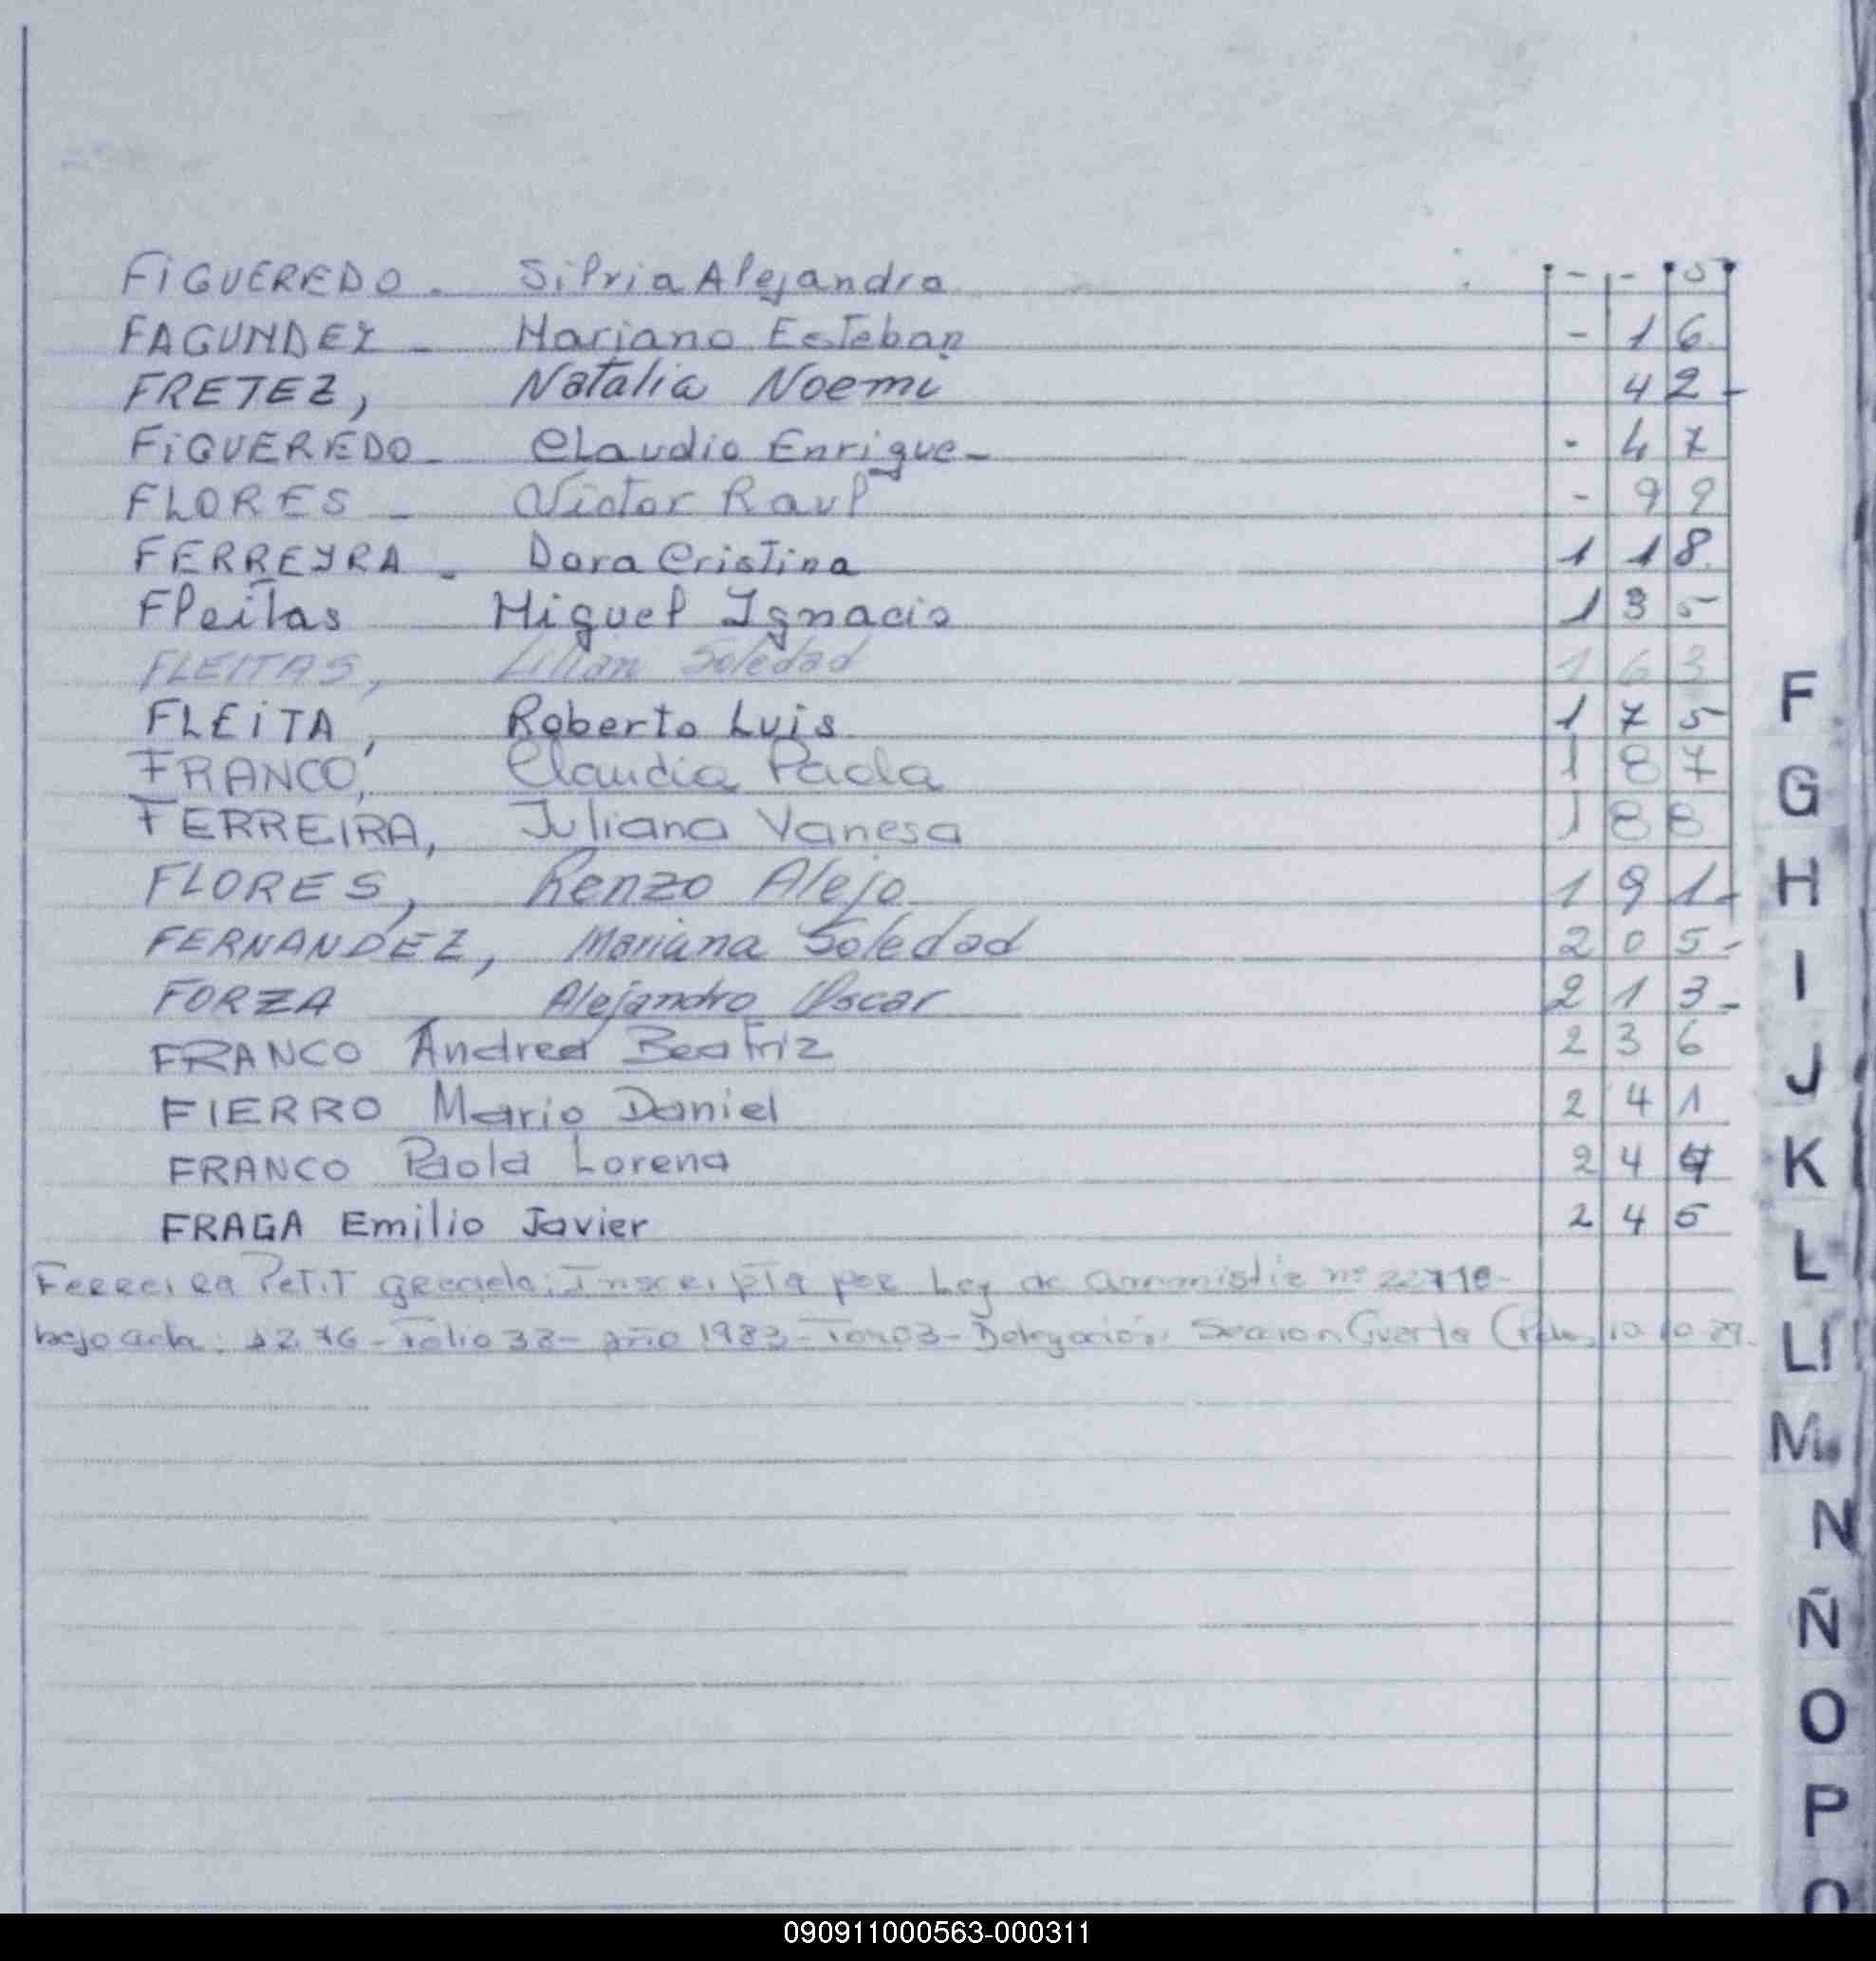 FIGUEREDO - Silvia Alejandra - - 5
FAGUNDEZ - Mariano Esteban - 16.
FRETEZ, Natalia Noemi 42-
FIGUEREDO - Claudio Enrique - - 47
FLORES - Victor Raul - 99
FERREYRA - Dora Cristina 118.
Fleitas Miguel Ignacio 135
FLEITAS, Lilian Soledad 163
FLEITA, Roberto Luis 175
FRANCO, Claudia Paola 187
FERREIRA, Juliana Vanesa 188
FLORES, Renzo Alejo 191-
FERNANDEZ, Mariana Soledad 205-
FORZA Alejandro Oscar 213-
FRANCO Andrea Beatriz 236
FIERRO Mario Daniel 241
FRANCO Paola Lorena 244
FRAGA Emilio Javier 245
Ferreira Petit Inscripta por Ley de nº
bajo acta: - Folio 38 - año 1983 - Tomo 3 - Delegación Seccion Cuarta
F
G
H
I
J
K
L
Ll
M
N
Ñ
O
P
090911000563-000311